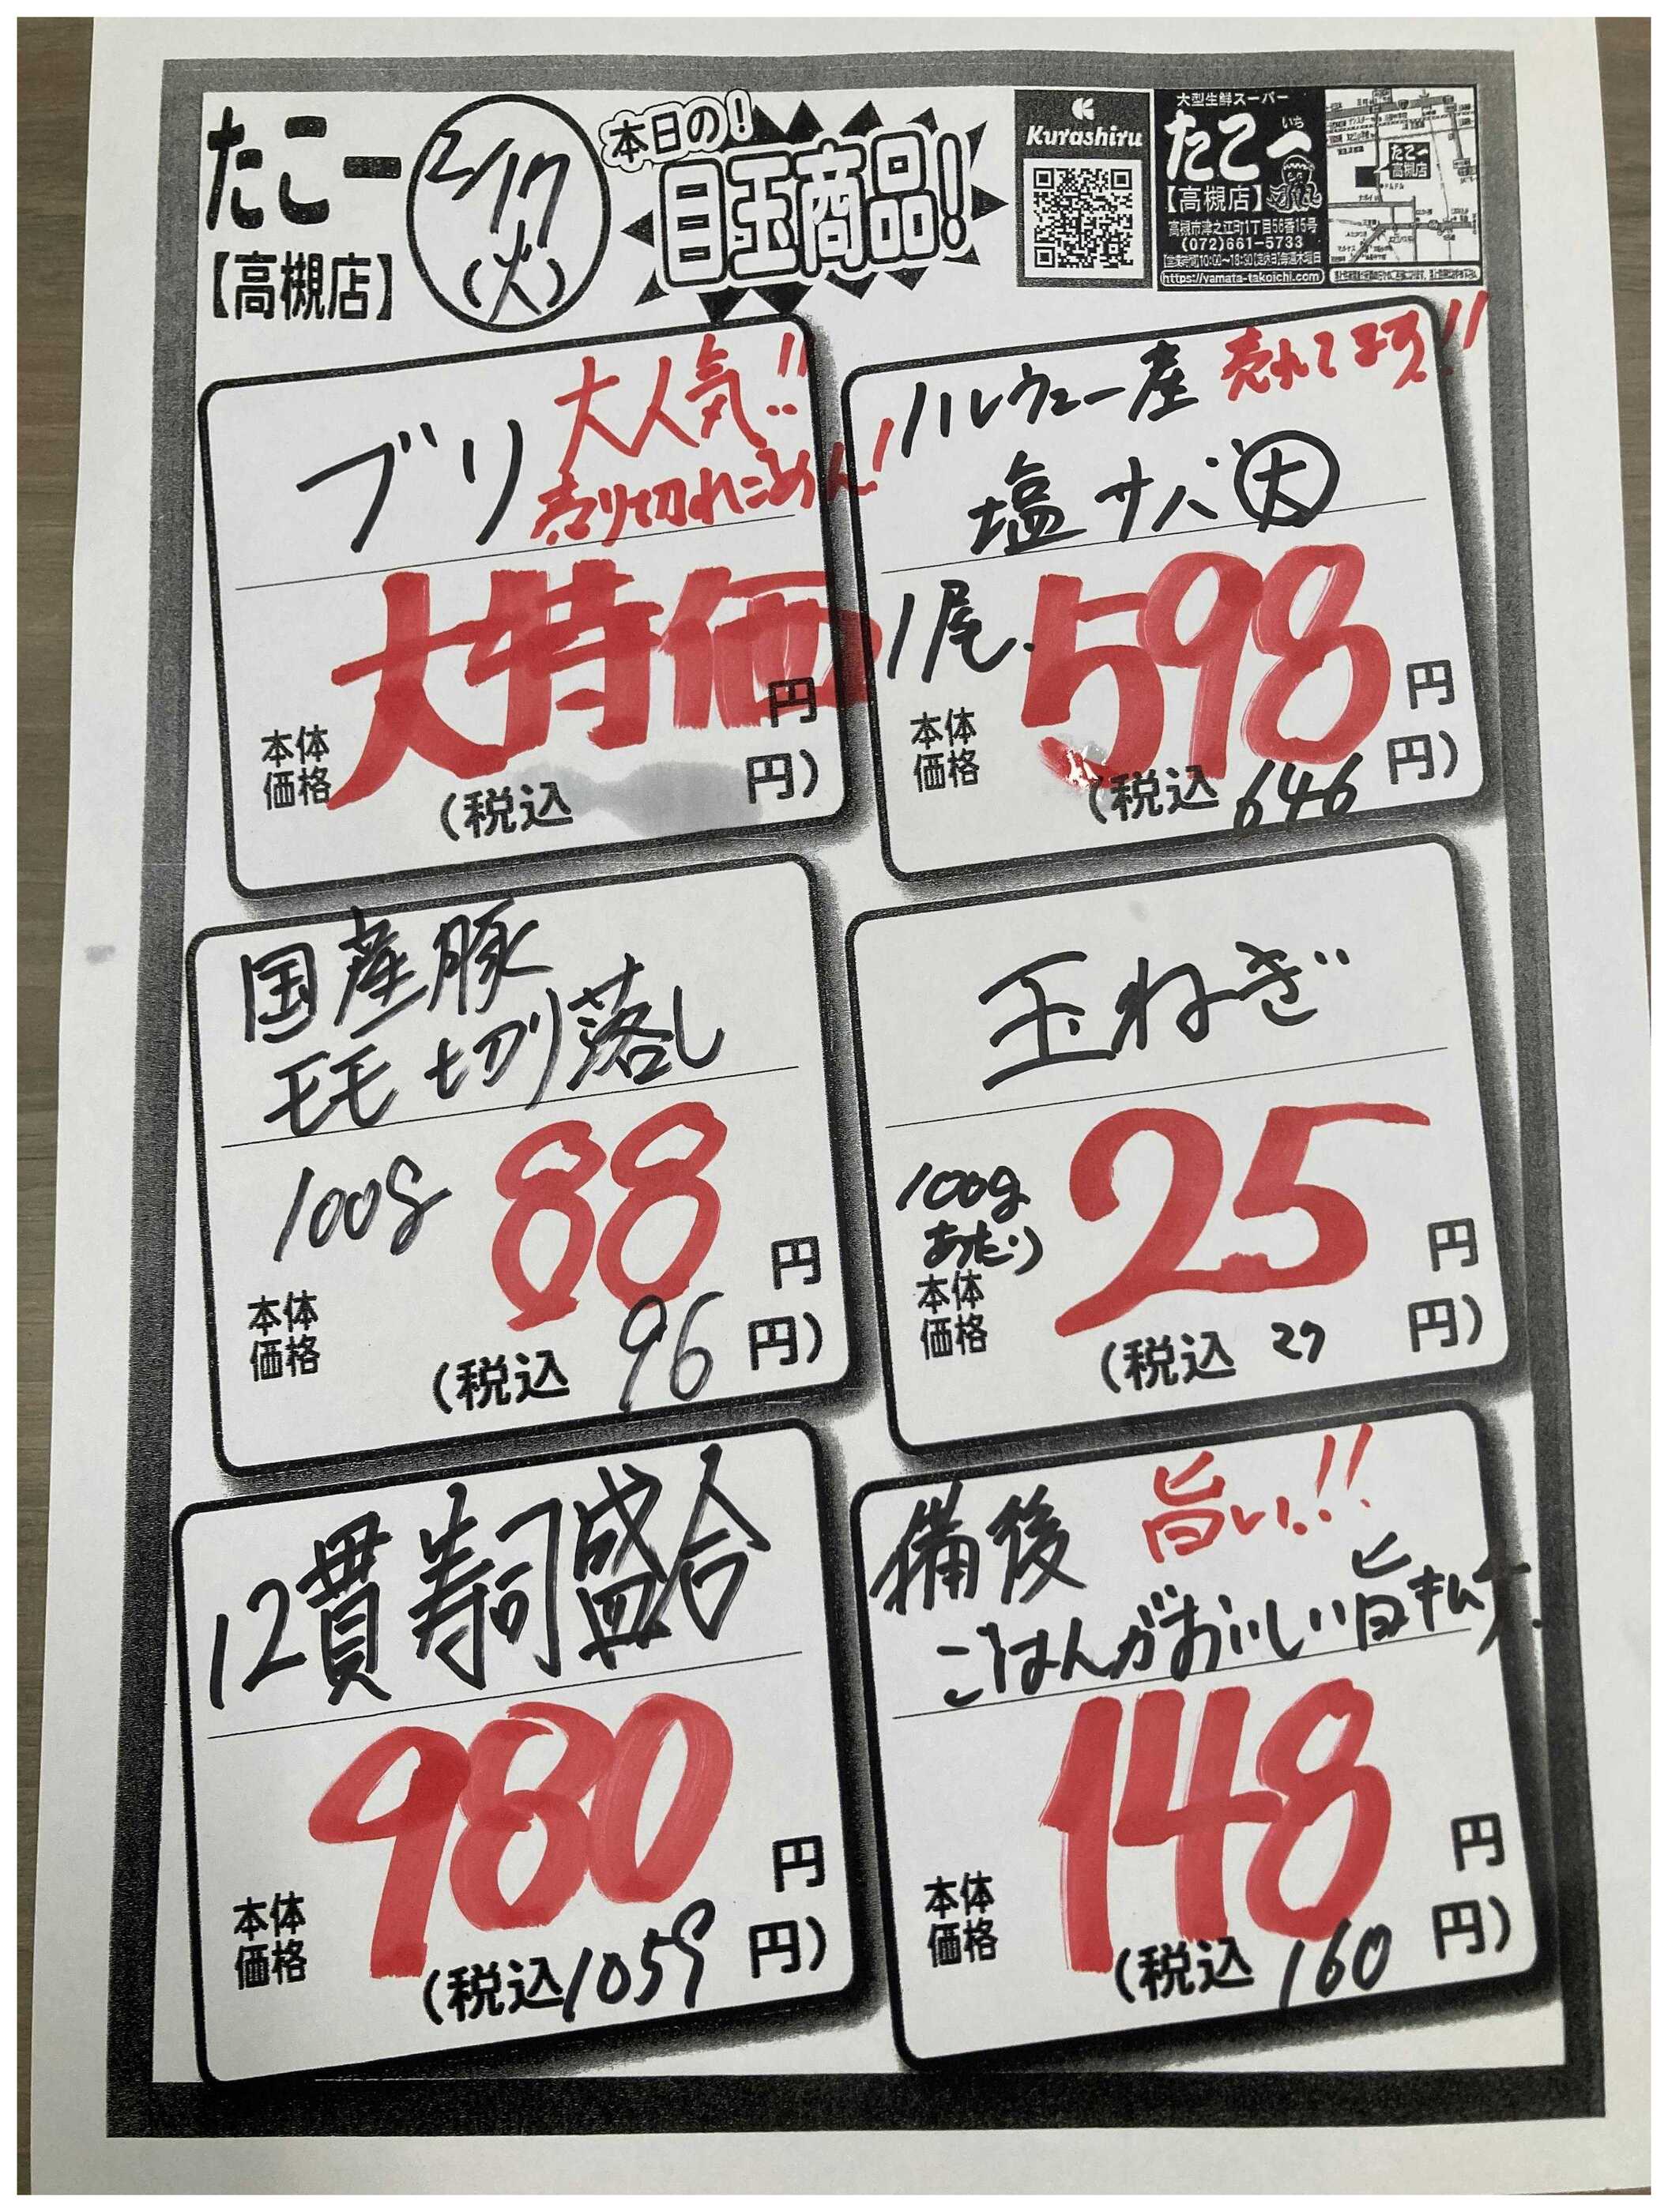 たこ一
【高槻店】
2/17
(火)
本日の!
目玉商品!
Kurashiru
大型生鮮スーパー
たこ一
いち
【高槻店】
高槻市津之江町1丁目58番15号
(072)661-5733
【営業時間】10:00~18:30【定休日】毎週木曜日
https://yamata-takoichi.com
たこ一
高槻店
ブリ
大人気!!
売り切れごめん!
大特価
円
本体
価格
(税込 円)
ノルウェー産
売れてます!!
塩サバ大
1尾
598
円
本体
価格
(税込 646 円)
国産豚
モモ切り落し
100g
88
円
本体
価格
(税込 96 円)
玉ねぎ
100g
あたり
25
円
本体
価格
(税込 27 円)
12貫寿司盛合
980
円
本体
価格
(税込 1059 円)
備後
旨い!!
ごはんがおいしい旨キムチ
148
円
本体
価格
(税込 160 円)